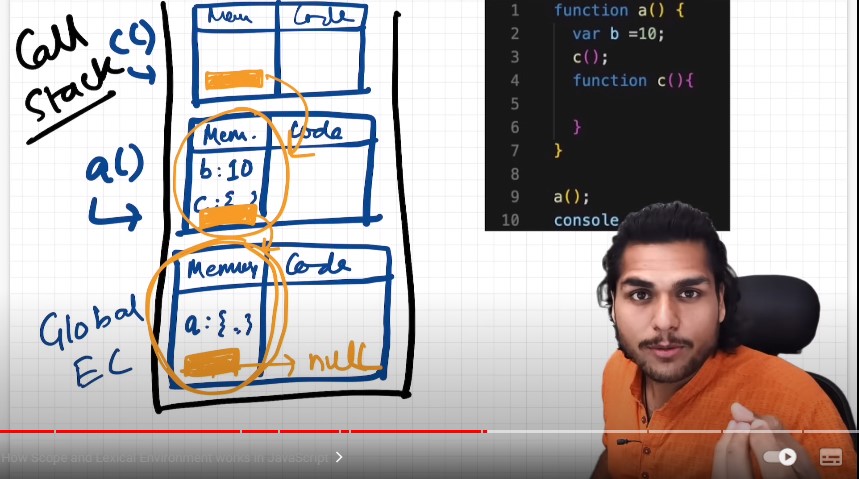 Call
Stack
c()
Mem
Code
a()
Mem.
Code
b:10
c:{ }
Global
EC
Memory
Code
a:{.}
null
1 function a() {
2 var b =10;
3 c();
4 function c(){
5
6 }
7 }
8
9 a();
10 console
How Scope and Lexical Environment works in JavaScript